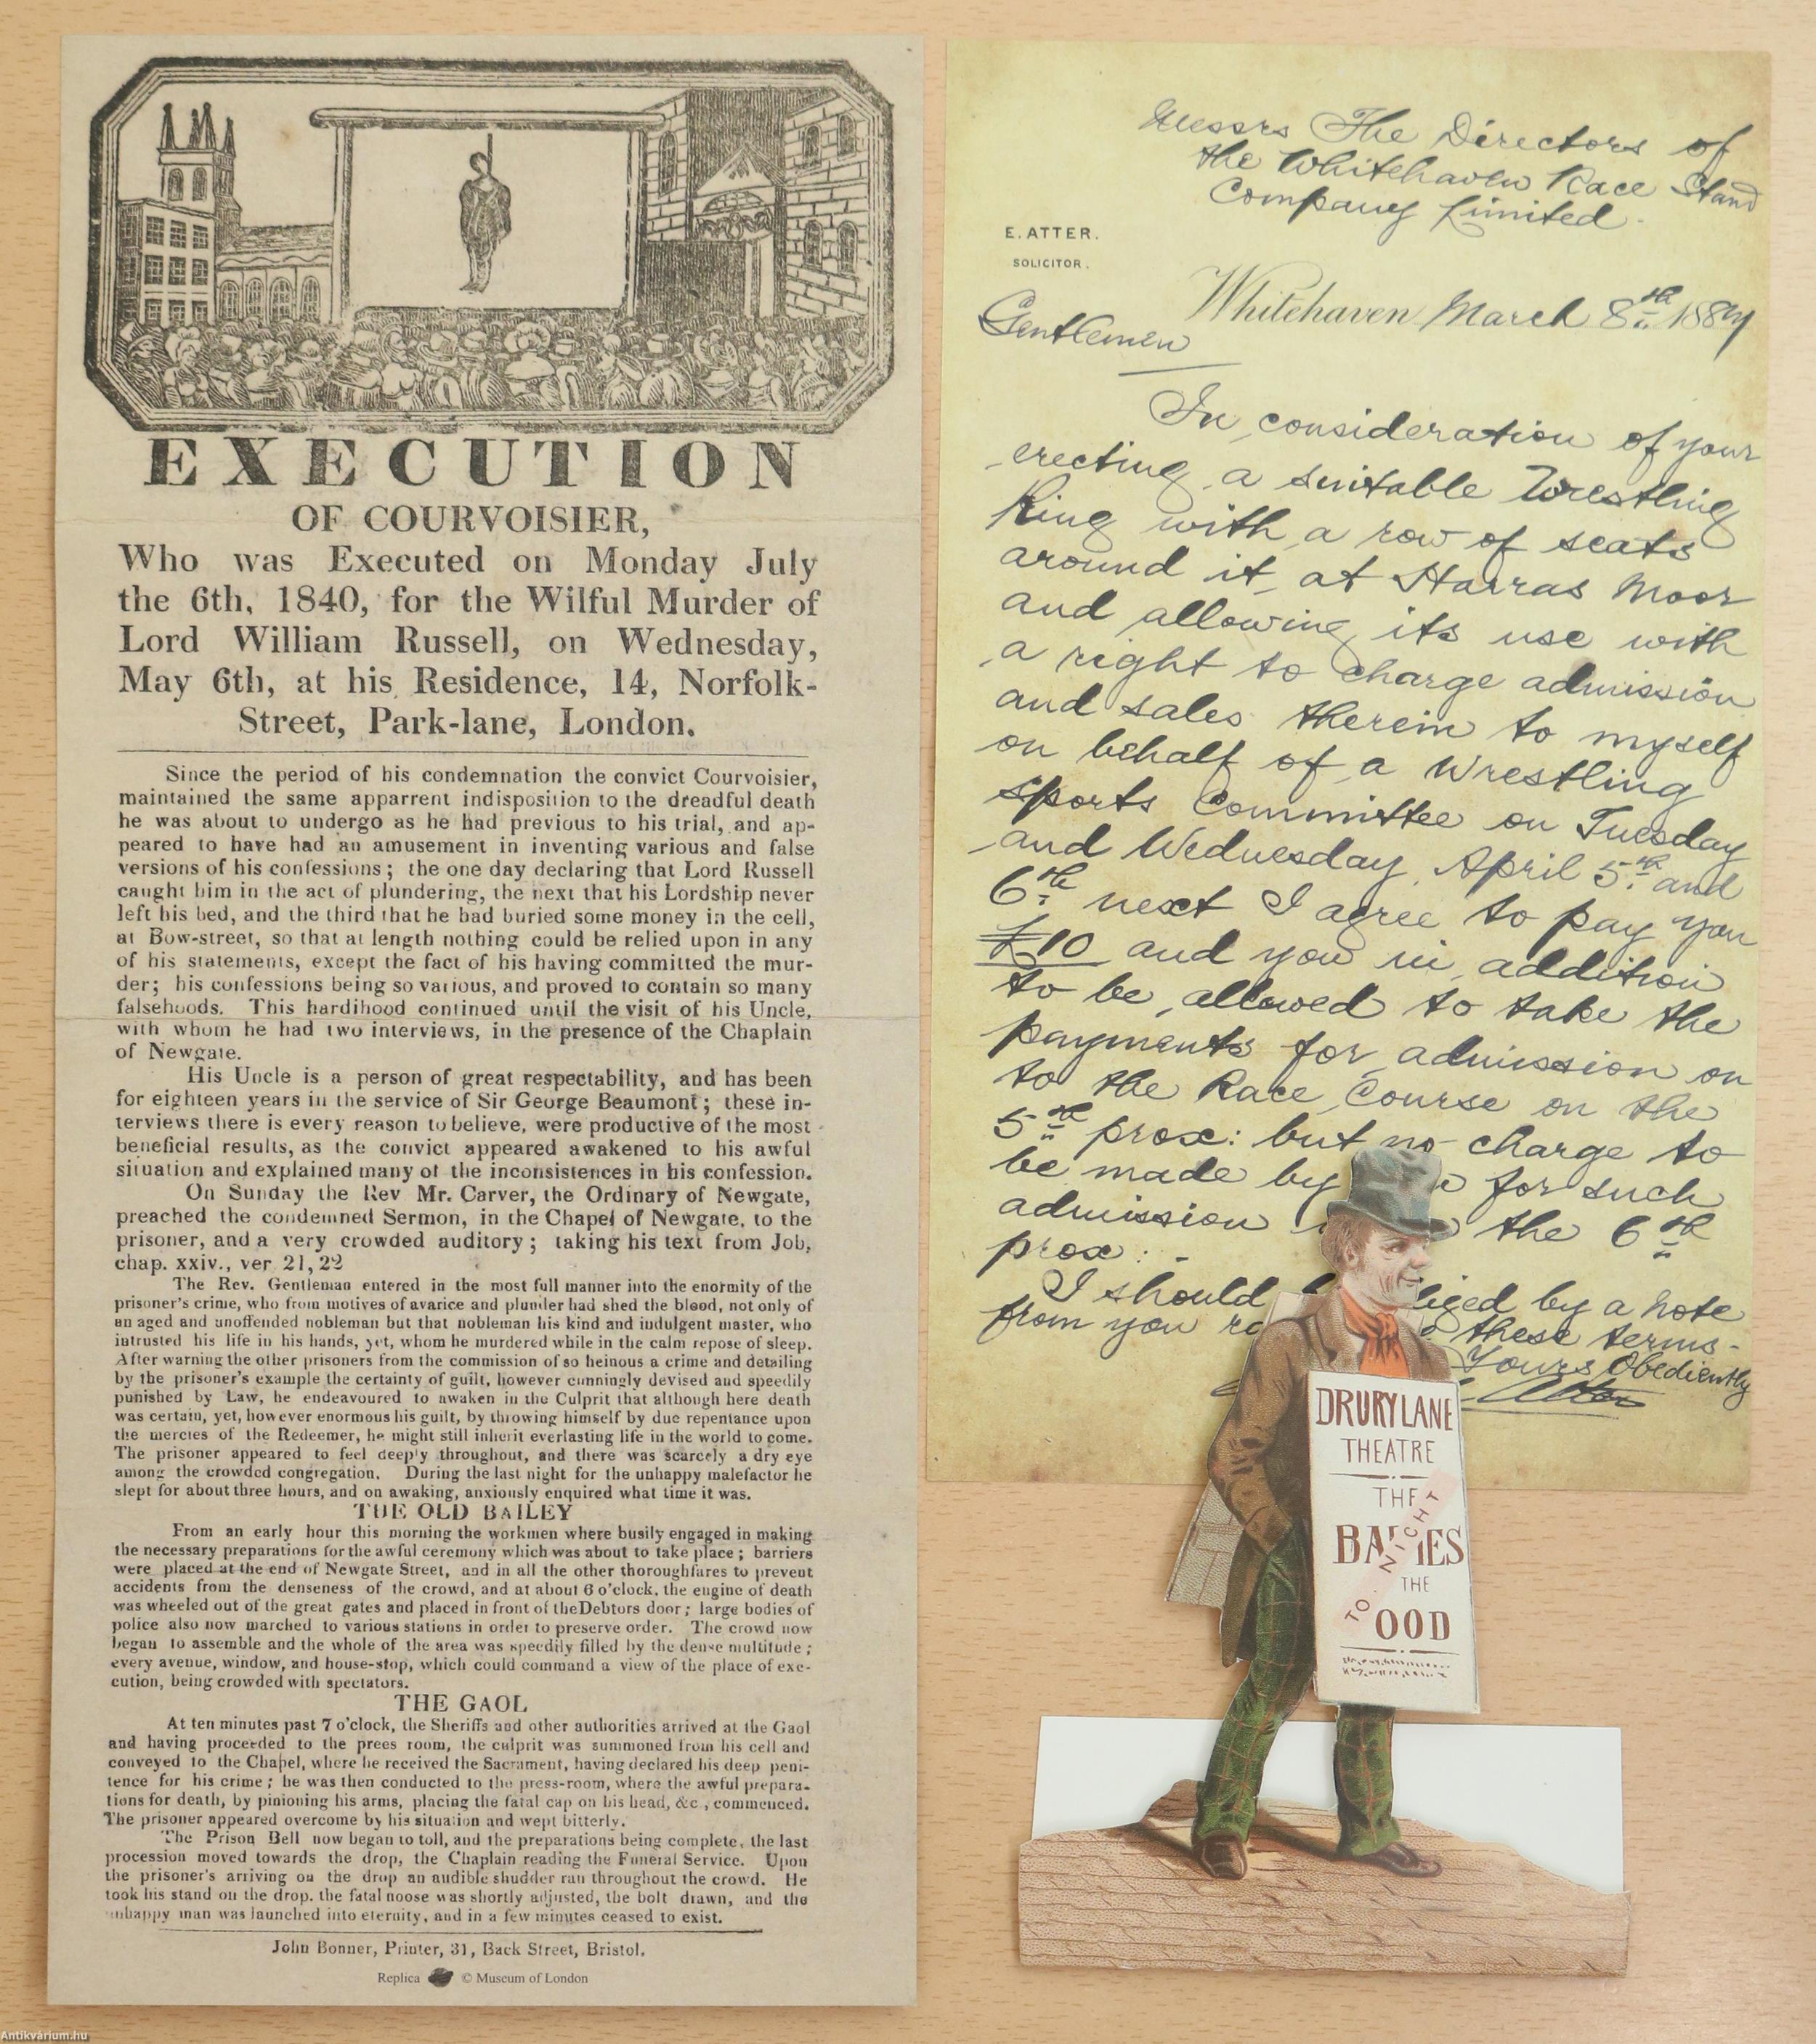 EXECUTION
OF COURVOISIER,
Who was Executed on Monday July
the 6th, 1840, for the Wilful Murder of
Lord William Russell, on Wednesday,
May 6th, at his Residence, 14, Norfolk-
Street, Park-lane, London.
Since the period of his condemnation the convict Courvoisier,
maintained the same apparrent indisposition to the dreadful death
he was about to undergo as he had previous to his trial, and ap-
peared to have had an amusement in inventing various and false
versions of his confessions; the one day declaring that Lord Russell
caught him in the act of plundering, the next that his Lordship never
left his bed, and the third that he had buried some money in the cell,
at Bow-street, so that at length nothing could be relied upon in any
of his statements, except the fact of his having committed the mur-
der; his confessions being so various, and proved to contain so many
falsehoods. This hardihood continued until the visit of his Uncle,
with whom he had two interviews, in the presence of the Chaplain
of Newgate.
His Uncle is a person of great respectability, and has been
for eighteen years in the service of Sir George Beaumont; these in-
terviews there is every reason to believe, were productive of the most
beneficial results, as the convict appeared awakened to his awful
situation and explained many of the inconsistences in his confession.
On Sunday the Rev Mr. Carver, the Ordinary of Newgate,
preached the condemned Sermon, in the Chapel of Newgate, to the
prisoner, and a very crowded auditory; taking his text from Job,
chap. xxiv., ver 21, 22
The Rev. Gentleman entered in the most full manner into the enormity of the
prisoner's crime, who from motives of avarice and plunder had shed the blood, not only of
an aged and unoffended nobleman but that nobleman his kind and indulgent master, who
intrusted his life in his hands, yet, whom he murdered while in the calm repose of sleep.
After warning the other prisoners from the commission of so heinous a crime and detailing
by the prisoner's example the certainty of guilt, however cunningly devised and speedily
punished by Law, he endeavoured to awaken in the Culprit that although here death
was certain, yet, however enormous his guilt, by throwing himself by due repentance upon
the mercies of the Redeemer, he might still inherit everlasting life in the world to come.
The prisoner appeared to feel deeply throughout, and there was scarcely a dry eye
among the crowded congregation. During the last night for the unhappy malefactor he
slept for about three hours, and on awaking, anxiously enquired what time it was.
THE OLD BAILEY
From an early hour this morning the workmen where busily engaged in making
the necessary preparations for the awful ceremony which was about to take place; barriers
were placed at the end of Newgate Street, and in all the other thoroughfares to prevent
accidents from the denseness of the crowd, and at about 6 o'clock, the engine of death
was wheeled out of the great gates and placed in front of the Debtors door; large bodies of
police also now marched to various stations in order to preserve order. The crowd now
began to assemble and the whole of the area was speedily filled by the dense multitude;
every avenue, window, and house-stop, which could command a view of the place of exe-
cution, being crowded with spectators.
THE GAOL
At ten minutes past 7 o'clock, the Sheriffs and other authorities arrived at the Gaol
and having proceeded to the prees room, the culprit was summoned from his cell and
conveyed to the Chapel, where he received the Sacrament, having declared his deep peni-
tence for his crime; he was then conducted to the press-room, where the awful prepara-
tions for death, by pinioning his arms, placing the fatal cap on his head, &c., commenced.
The prisoner appeared overcome by his situation and wept bitterly.
The Prison Bell now began to toll, and the preparations being complete, the last
procession moved towards the drop, the Chaplain reading the Funeral Service. Upon
the prisoner's arriving on the drop an audible shudder ran throughout the crowd. He
took his stand on the drop. the fatal noose was shortly adjusted, the bolt drawn, and the
unhappy man was launched into eternity, and in a few minutes ceased to exist.
John Bonner, Printer, 31, Back Street, Bristol.
Replica © Museum of London
Messrs The Directors of
the Whitehaven Race Stand
Company Limited.
E. ATTER.
SOLICITOR.
Whitehaven March 8th 188
Gentlemen
In consideration of your
erecting a suitable Wrestling
Ring with a row of seats
around it at Harras Moor
and allowing its use with
a right to charge admission
and sales therein to myself
on behalf of a Wrestling
sports Committee on Tuesday
and Wednesday April 5th and
6th next I agree to pay you
£10 and you in addition
to be allowed to take the
payments for admission on
to the Race Course on the
5th prox: but no charge to
be made by for such
admission the 6th
prox:-
I should liged by a note
from you these terms-
Yours Obediently
Atter
DRURY LANE
THEATRE
THE
BA IES
THE
OOD
TO. NIGHT
Antikvárium.hu